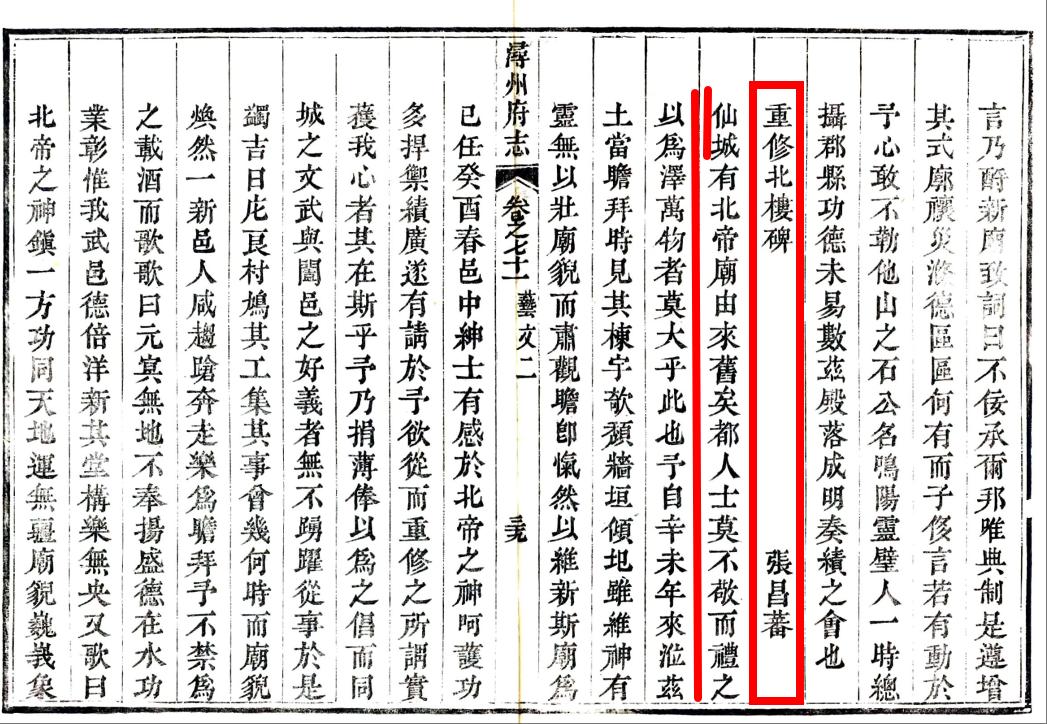 言乃酹新廟致詞曰不佞承爾邦唯典制是遵增
其式廓禳災滌德區區何有而子侈言若有動於
予心敢不勒他山之石公名鳴陽靈璧人一時總
攝郡縣功德未易數茲殿落成明奏績之會也
重修北樓碑 張昌蕃
仙城有北帝廟由來舊矣都人士莫不敬而禮之
以為澤萬物者莫大乎此也予自辛未年來涖茲
土當瞻拜時見其棟宇欹頹牆垣傾圯雖維神有
靈無以壯廟貌而肅觀瞻卽愾然以維新斯廟爲
潯州府志 卷之七十一 藝文二 三九
己任癸酉春邑中紳士有感於北帝之神呵護功
多捍禦績廣遂有請於予欲從而重修之所謂實
獲我心者其在斯乎予乃捐薄俸以爲之倡而同
城之文武與闔邑之好義者無不踴躍從事於是
蠲吉日庀良村鳩其工集其事會幾何時而廟貌
煥然一新邑人咸趨蹌奔走樂爲瞻拜予不禁爲
之載酒而歌歌曰元冥無地不奉揚盛德在水功
業彰惟我武邑德倍洋新其堂構樂無央又歌曰
北帝之神鎮一方功同天地運無疆廟貌巍峩象